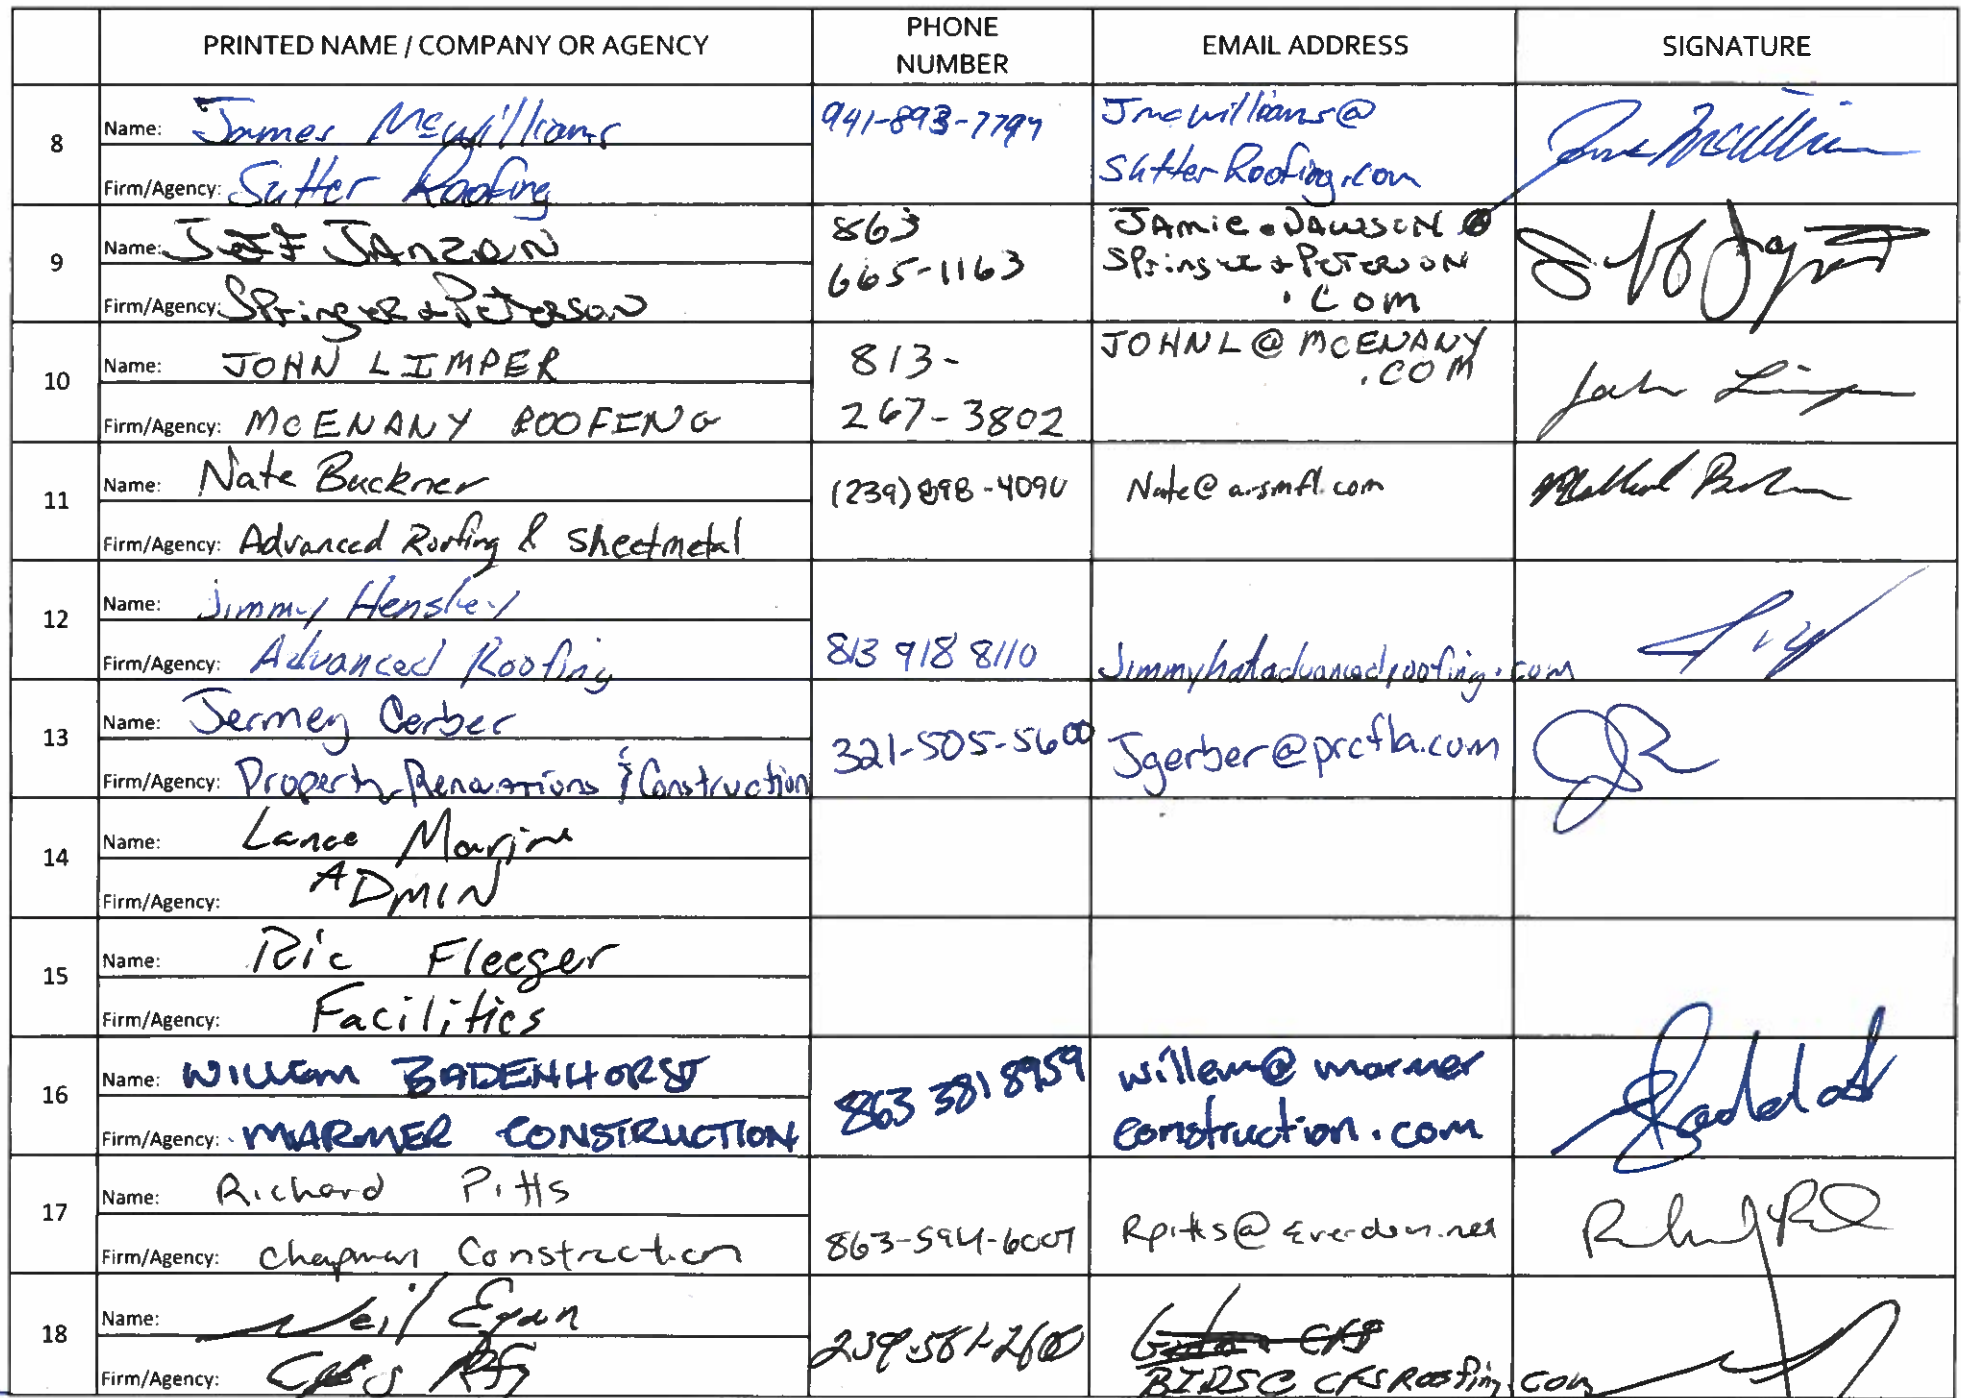 PRINTED NAME / COMPANY OR AGENCY
PHONE
NUMBER
EMAIL ADDRESS
SIGNATURE
8
Name: James McWilliams
Firm/Agency: Sutter Roofing
941-893-7797
Jmcwilliams@
SutterRoofing.com
9
Name: Jeff Janzen
Firm/Agency: Springer & Peterson
863
665-1163
JAmie.DAWSON@
SPringer&PETERSON
.COM
10
Name: JOHN LIMPER
Firm/Agency: MCENANY ROOFING
813-
267-3802
JOHNL@MCENANY
.COM
John Limper
11
Name: Nate Buckner
Firm/Agency: Advanced Roofing & Sheetmetal
(239) 898-4090
Nate@arsmfl.com
12
Name: Jimmy Hensley
Firm/Agency: Advanced Roofing
813 918 8110
Jimmyhatadvancedroofing.com
13
Name: Jermey Gerber
Firm/Agency: Property Renovations & Construction
321-505-5600
Jgerber@prcfla.com
14
Name: Lance
Firm/Agency: ADMIN
15
Name: Ric Fleeger
Firm/Agency: Facilities
16
Name: WILLEM BADENHORST
Firm/Agency: MARMER CONSTRUCTION
863 381 8959
willem@marmer
construction.com
17
Name: Richard Pitts
Firm/Agency: Chapman Construction
863-594-6007
Rpitts@
18
Name: Neil Egan
Firm/Agency: CFS
239-561-2600
BIDS@CFSRoofing.com